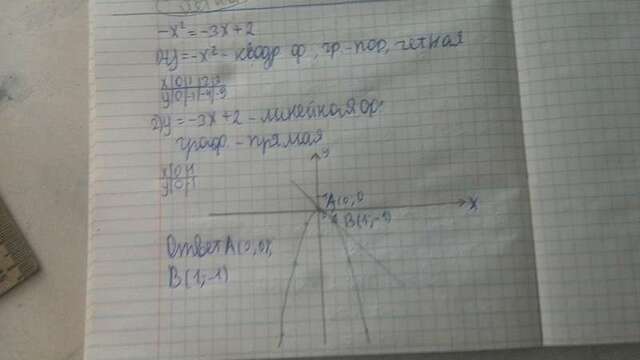 -x² = -3x+2
1) y = -x² - квадр ф, гр. - пар, четная
x|0|1|2|3
y|0|-1|-4|-9
2) y = -3x+2 - линейная ф.
граф. - прямая
x|0|1
y|0|-1
y
A(0,0
x
B(1,-1)
Ответ A(0,0),
B(1,-1)